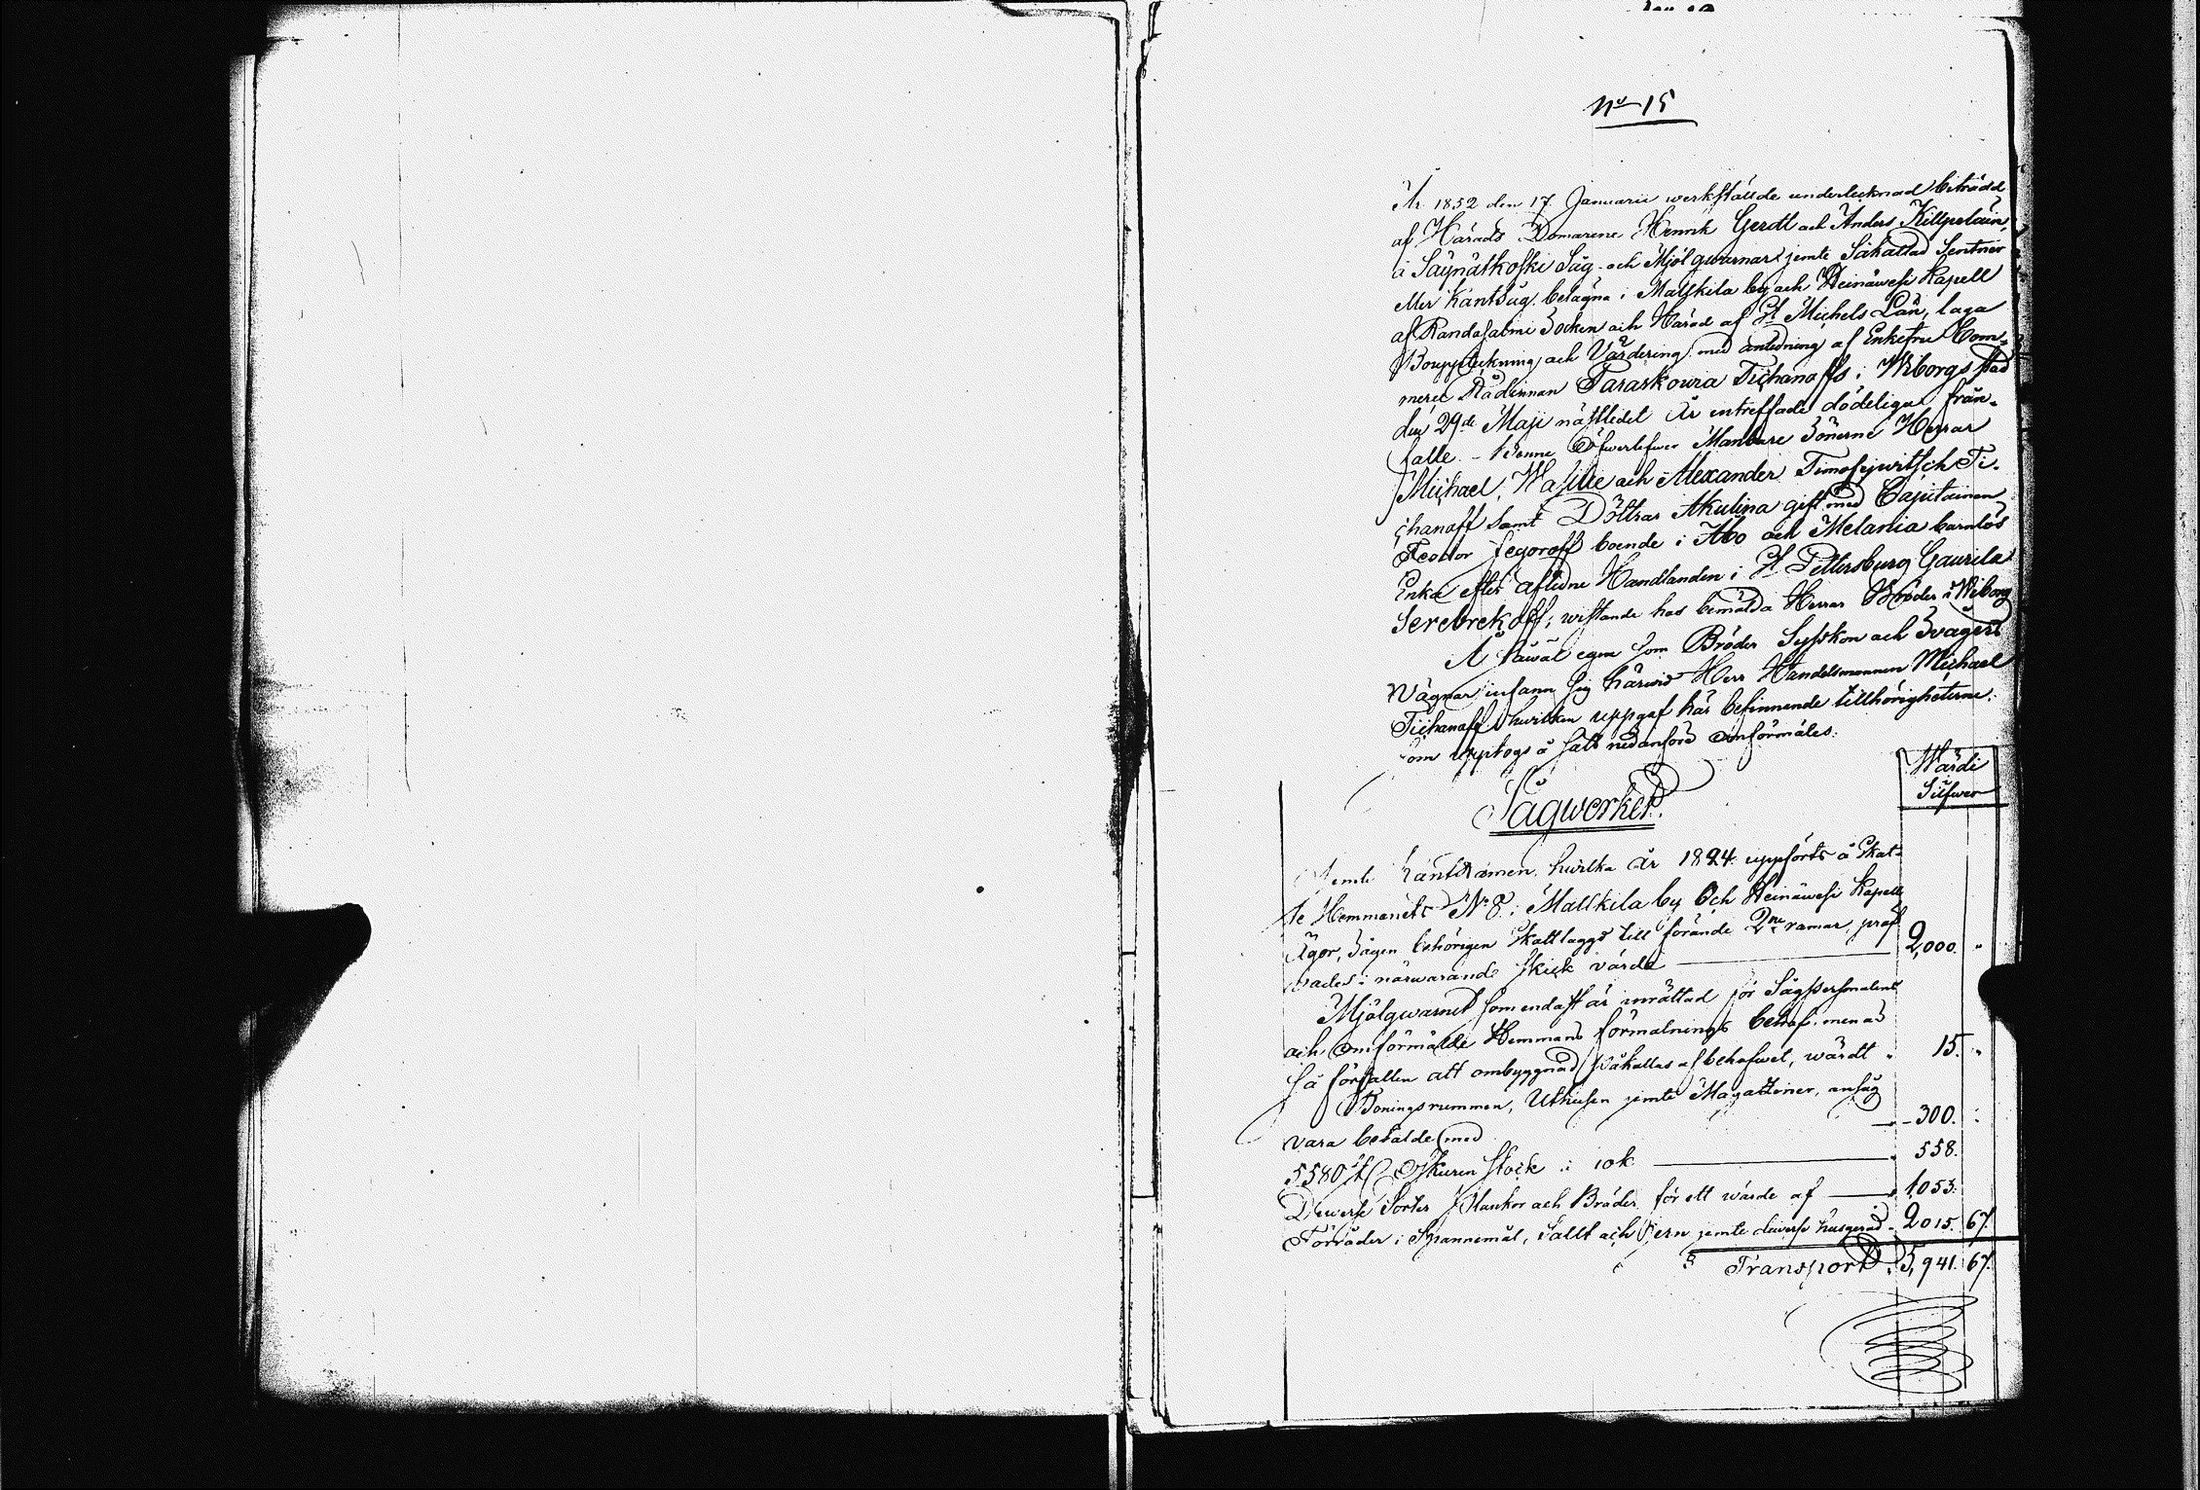 No 15
År 1852 den 17 Januarii werkställde undertecknad biträdd
af Härads Domarene Henrik Gerdt och Anders Killpeläin,
å Säynätkoski Såg- och Mjölqwarnar jemte Såkallad
eller Kantsåg belägna i Malkkila by och Heinäwesi Kapell
af Randasalmi Socken och Härad af St Michels Län, laga
Bouppteckning och Värdering med anledning af Enkefru Com-
merce Rådinnan Paraskowia Tichanoffs i Wiborgs stad
den 29de Maji nästledet År inträffade dödeliga från-
falle. - Denne Öfwerlefwer Manbare Sönerne Herrar
Michael, Wasilie och Alexander Timofejwitsch Ti-
chanoff samt Döttrar Akulina gift med Capitainen
Feodor Jegoroff boende i Åbo och Melania barnlös
Enka efter aflidne Handlanden i St Pettersburg Gavrila
Serebrekoff, wistande hos bemälda Herrar Bröder i Wiborg
Å såwäl egne som Bröder Sysskon och Svägers
Vägnar infann sig härwid Herr Handelsmannen Michael
Tichanoff hwilken uppgaf här befinnande tillhörigheterne
som upptogs å sätt nedanföre omförmäles.
Wärde
Silfwer
Sågwerket.
Jemte Kantramen, hwilka År 1824 uppförts å Skat-
te Hemmanets No 8 i Malkkila by och Heinäwesi Kapell
Ägor, Sågen behörigen Skattlagd till förande 2ne ramar, prof
nader i närwarande skick värde 2,000. "
Mjölqwarnet som endast är inrättad för Sågpersonalens
och omförmälte Hemmans förmalnings behof, men är
så förfallen att ombyggnad påkallas af behofwet, wärdt " 15. "
Boningsrummen, Uthusen jemte Magaziner, ansåg
vara betalde med 300. "
5580 st Oskuren Stock i 10 k 558.
Diwerse Sorter Plankor och Bräder för ett wärde af 1,053.
Förråder i Spannemål, Sallt och Jern jemte diverse husgeråd 2015. 67.
Transport 5,941. 67.